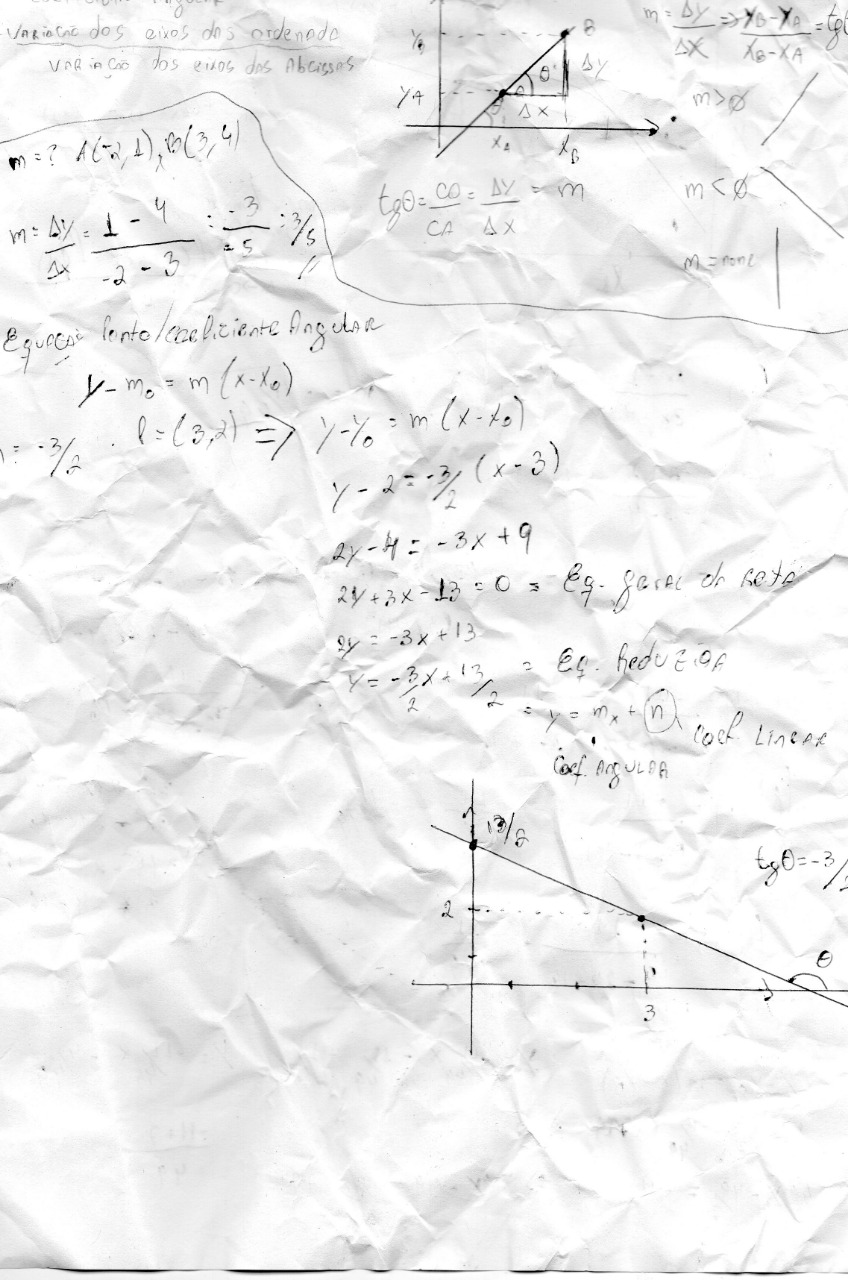 Coeficiente Angular
Variação dos eixos das ordenada
Variação dos eixos das Abcissas
YB
B
YA
θ
θ
θ
ΔY
ΔX
XA
XB
m = ΔY/ΔX => YB-YA/XB-XA = tgθ
m>∅
m<∅
m = none
tgθ = CO/CA = ΔY/ΔX = m
m = ? A(-2,1), B(3,4)
m = ΔY/ΔX = 1 - 4/-2 - 3 = -3/-5 = 3/5
Equação Ponto/coeficiente Angular
y - m₀ = m (x-x₀)
= -3/2 . P = (3,2) => y-y₀ = m (x-x₀)
y - 2 = -3/2 (x - 3)
2y - 4 = -3x + 9
2y + 3x - 13 = 0 = Eq. geral da Reta
2y = -3x + 13
y = -3/2 x + 13/2 = Eq. Reduzida
= y = mx + n
Coef. Linear
Coef. Angular
13/2
2
3
tgθ = -3/2
θ